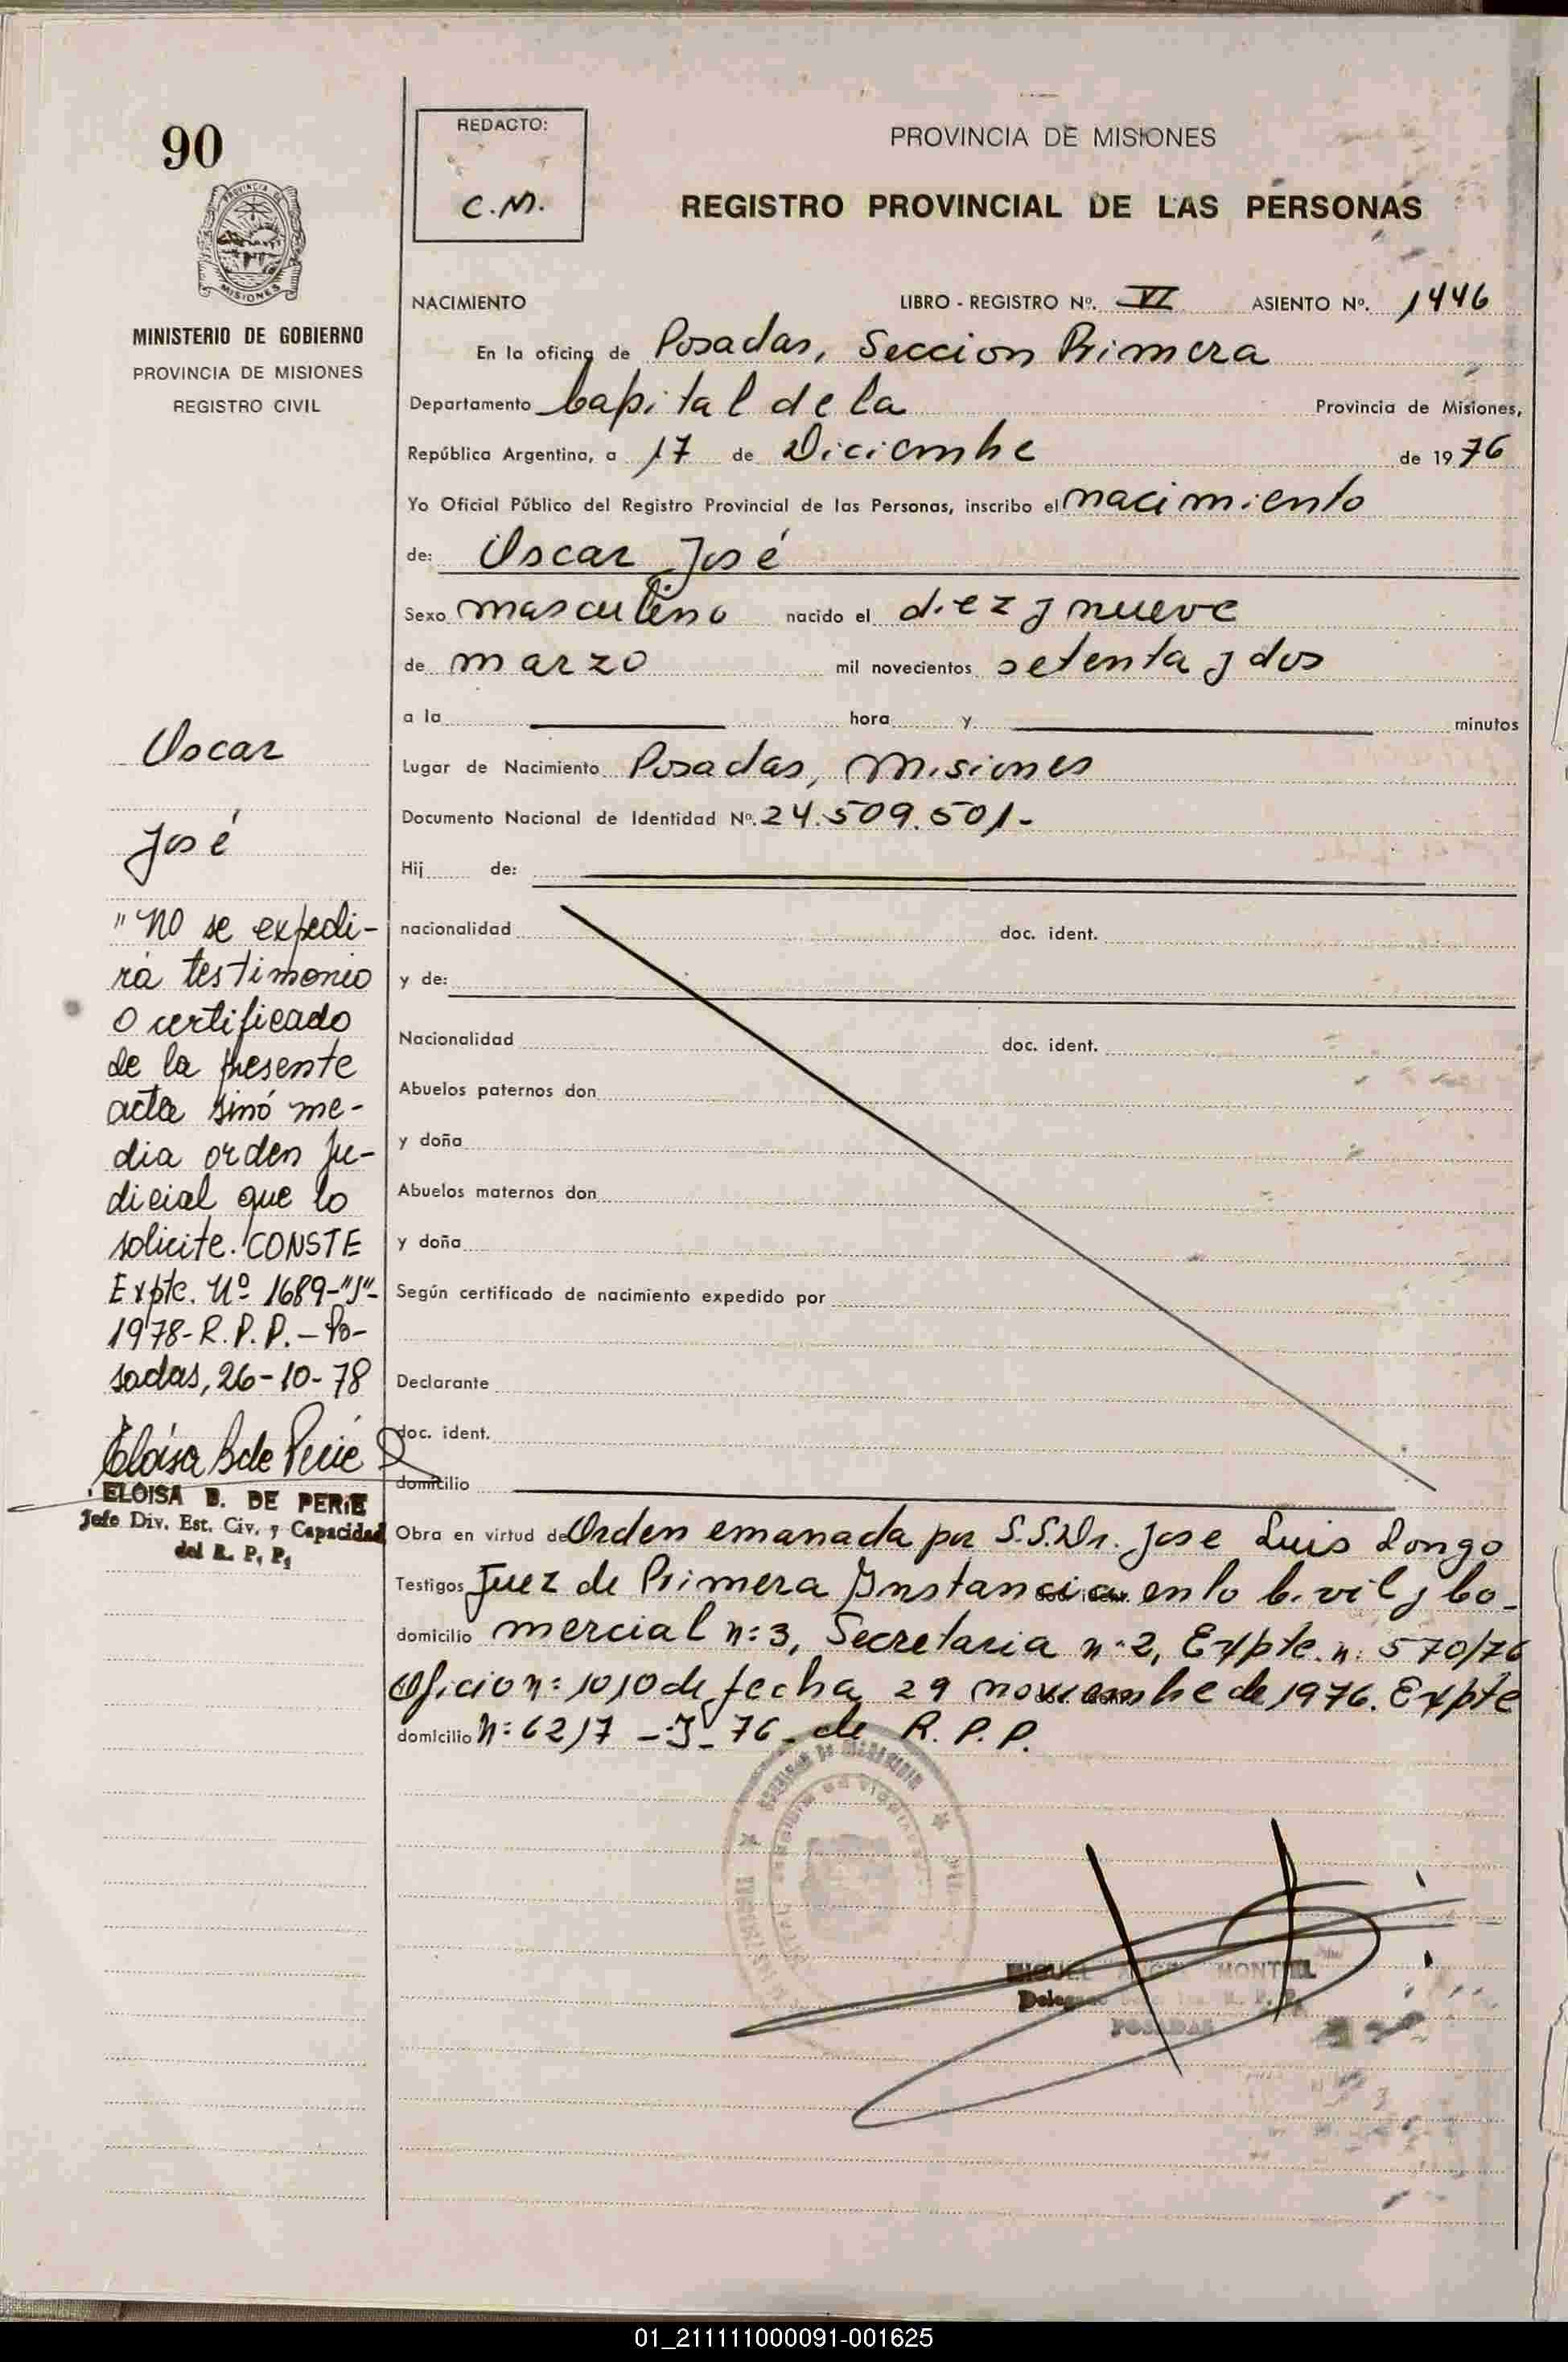 90
PROVINCIA DE MISIONES
MINISTERIO DE GOBIERNO
PROVINCIA DE MISIONES
REGISTRO CIVIL
Oscar
José
"NO se expedi-
rá testimonio
o certificado
de la presente
acta sinó me-
dia orden Ju-
dicial que lo
solicite. CONSTE
Expte. Nº 1689-"J"-
1978-R.P.P.-Po-
sadas, 26-10-78
Eloisa B de Perié
ELOISA B. DE PERIE
Jefe Div. Est. Civ. y Capacidad
del R. P. P.
REDACTO:
C.M.
PROVINCIA DE MISIONES
REGISTRO PROVINCIAL DE LAS PERSONAS
NACIMIENTO LIBRO - REGISTRO Nº. VI ASIENTO Nº. 1446
En la oficina de Posadas, Seccion Primera
Departamento Capital de la Provincia de Misiones,
República Argentina, a 17 de Diciembre de 1976
Yo Oficial Público del Registro Provincial de las Personas, inscribo el nacimiento
de: Oscar José
Sexo masculino nacido el diez y nueve
de marzo mil novecientos setenta y dos
a la hora y minutos
Lugar de Nacimiento Posadas, Misiones
Documento Nacional de Identidad Nº. 24.509.501-
Hij de:
nacionalidad doc. ident.
y de:
Nacionalidad doc. ident.
Abuelos paternos don
y doña
Abuelos maternos don
y doña
Según certificado de nacimiento expedido por
Declarante
doc. ident.
domicilio
Obra en virtud de Orden emanada por S.S. Dr. Jose Luis Longo
Testigos Juez de Primera Instancia en lo Civil y Co-
domicilio mercial n:3, Secretaria n:2, Expte. n: 570/76
Oficio n: 1010 de fecha 29 noviembre de 1976. Expte
domicilio N: 6217 -J- 76- de R. P. P.
MIGUEL ANGEL MONTIEL
R. P. P.
POSADAS
01_211111000091-001625